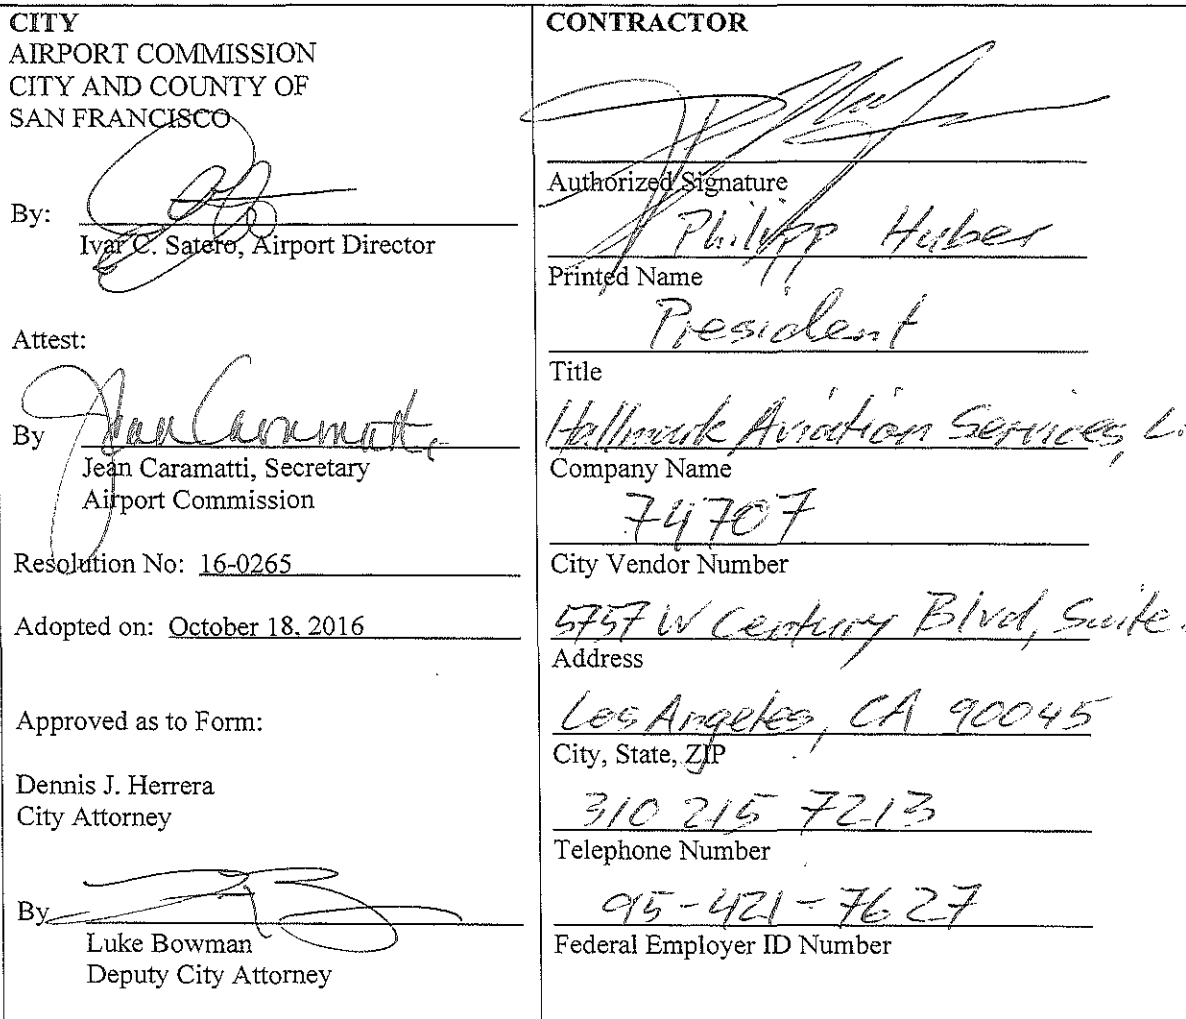 CITY
AIRPORT COMMISSION
CITY AND COUNTY OF
SAN FRANCISCO
By:
Ivar C. Satero, Airport Director
Attest:
By Jean Caramatti
Jean Caramatti, Secretary
Airport Commission
Resolution No: 16-0265
Adopted on: October 18, 2016
Approved as to Form:
Dennis J. Herrera
City Attorney
By
Luke Bowman
Deputy City Attorney
CONTRACTOR
Authorized Signature
Philipp Huber
Printed Name
President
Title
Hallmark Aviation Services, L.
Company Name
74707
City Vendor Number
5757 W Century Blvd, Suite
Address
Los Angeles, CA 90045
City, State, ZIP
310 215 7213
Telephone Number
95-421-7627
Federal Employer ID Number